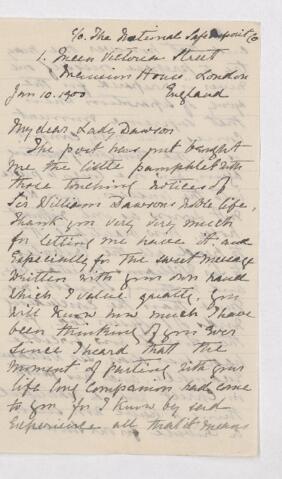 c/o. The National Safe Deposit Co
1. Queen Victoria Street
Mansion House. London
Jan 10. 1900 England
My dear Lady Dawson
The post has just brought
me the little pamphlet with
those touching notices of
Sir William Dawson's noble life,
Thank you very very much
for letting me have it and
Especially for the sweet message
written with your own hand
which I value greatly, you
will know how much I have
been thinking of you Ever
Since I heard that the
moment of parting with your
life long Companion had come
to you for I know by sad
Experience all that it means